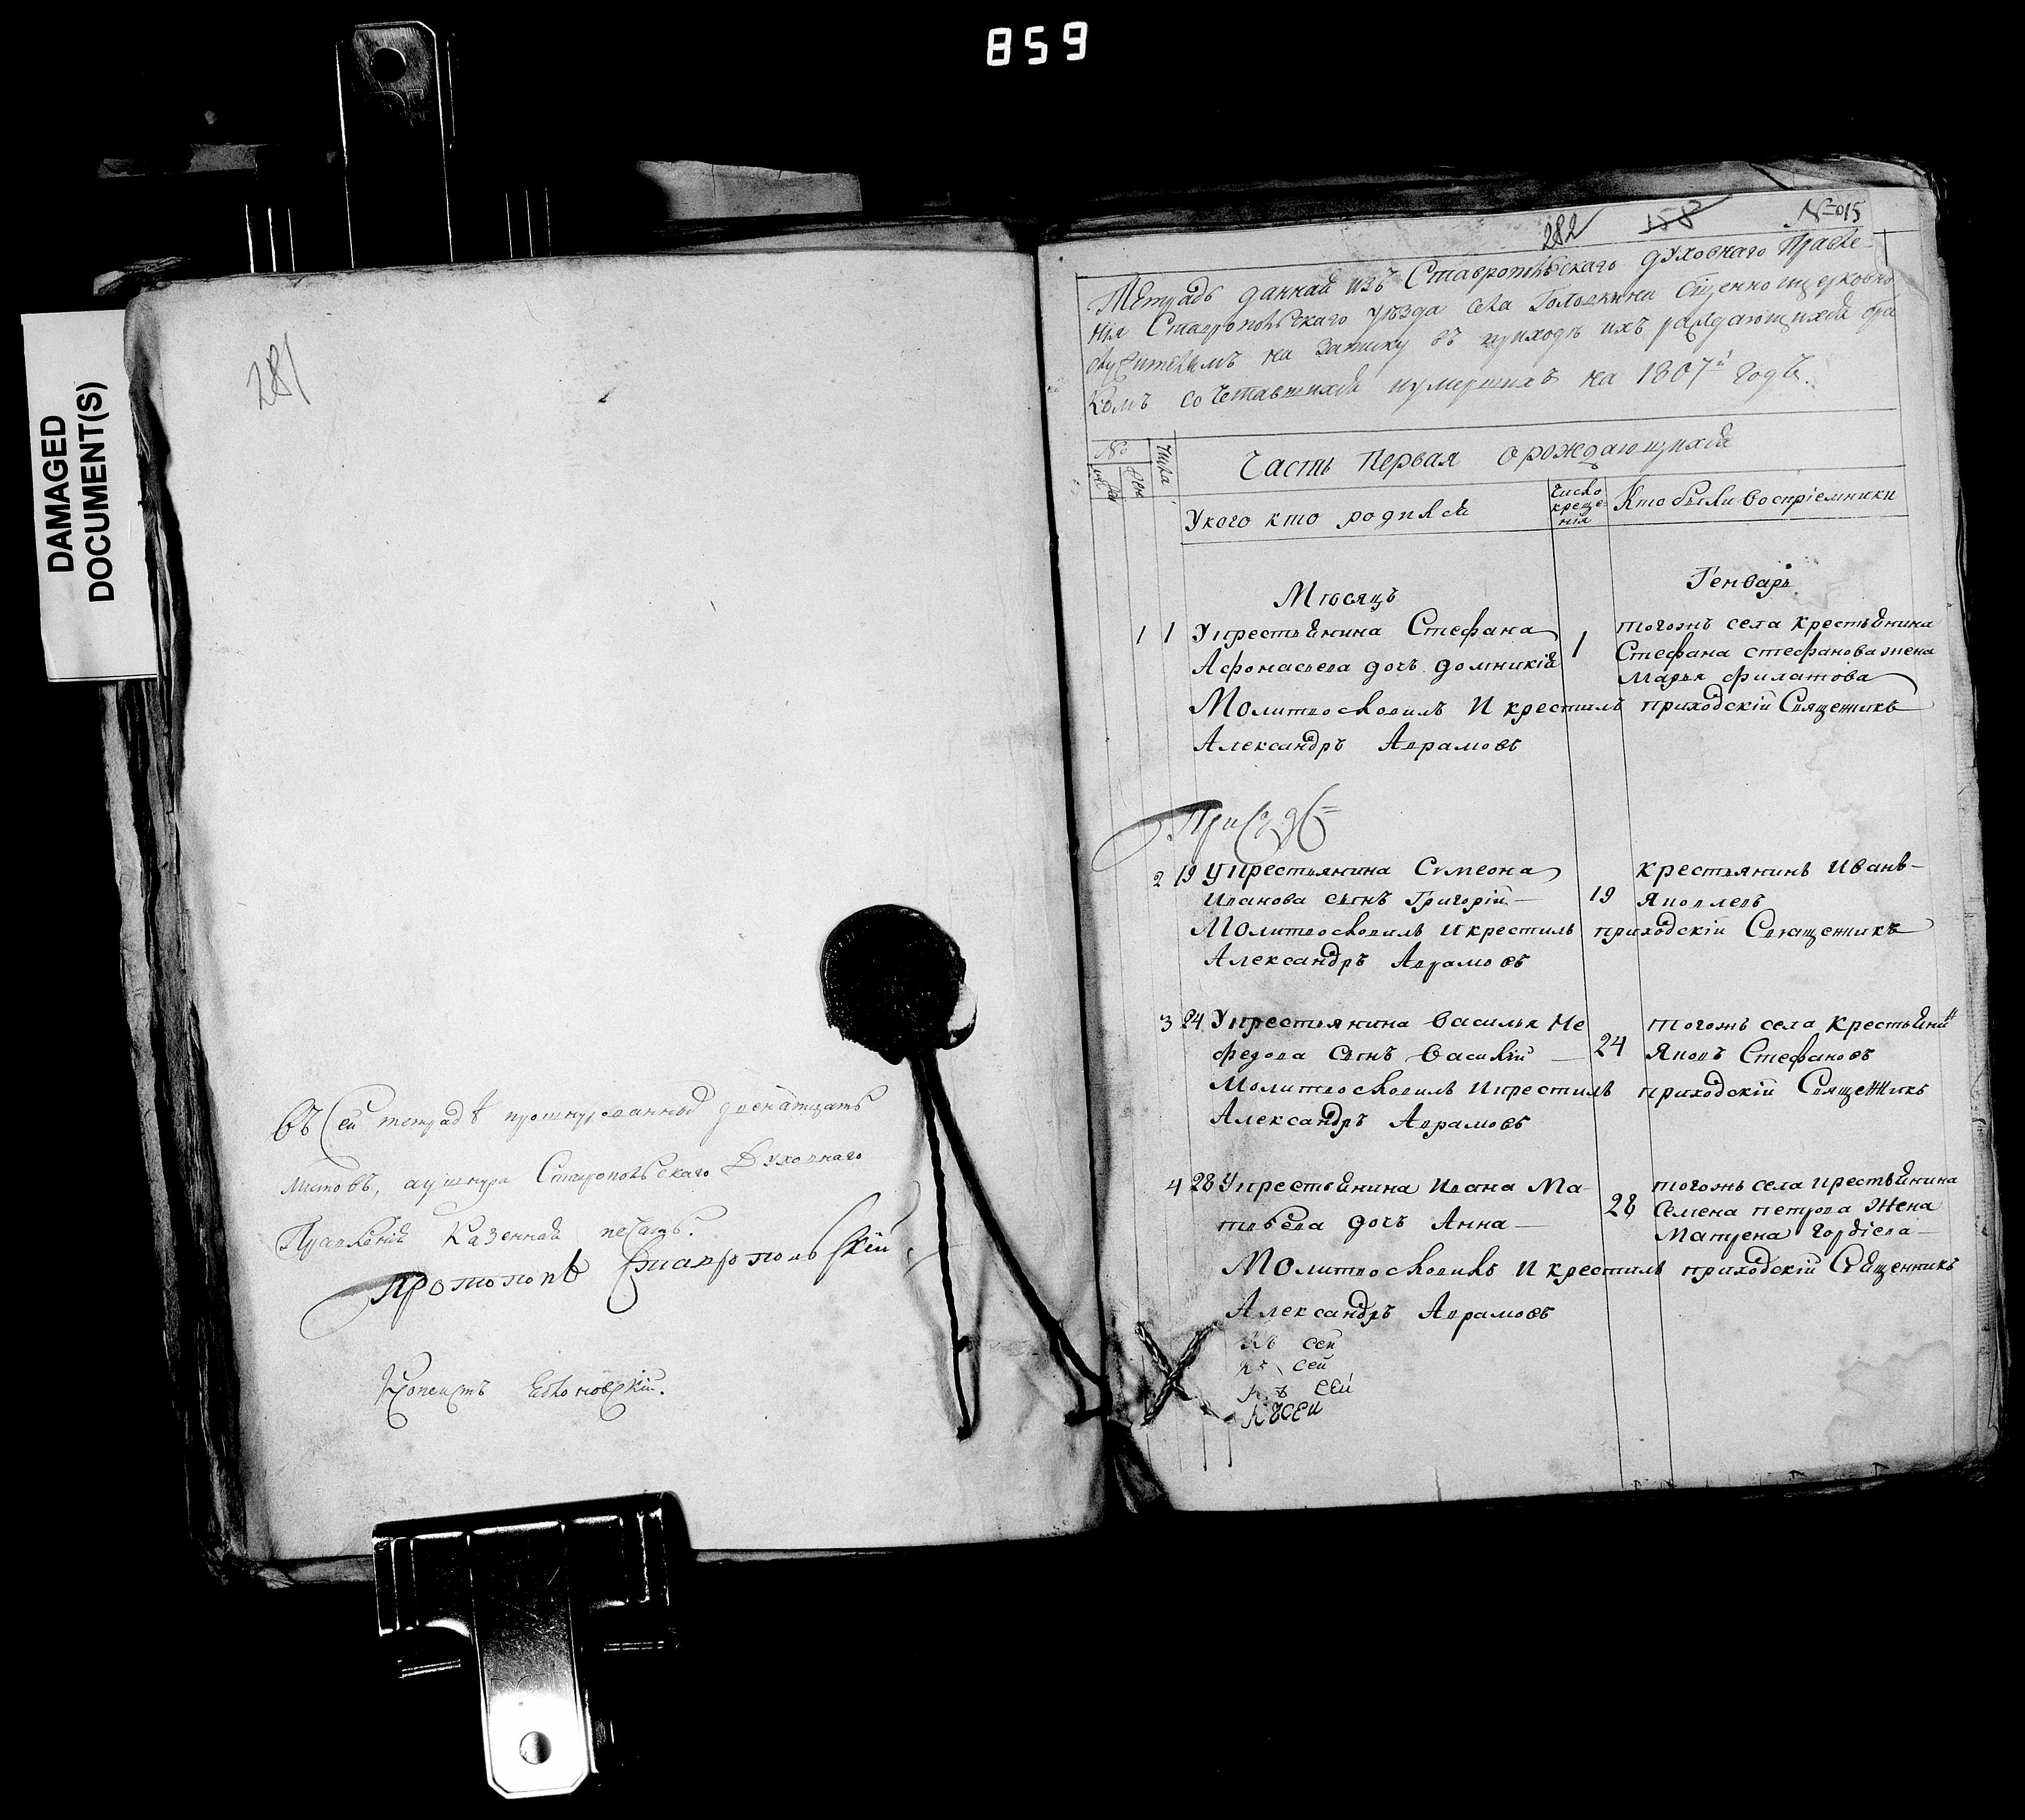 859
DAMAGED
DOCUMENT(S)
281
Въ сей тетраде прошнурованной двенатцать
листовъ, а у шнура Ставропольскаго Духовнаго
Правленія казенная печать.
Протопопъ Ставропольскій
Копеистъ
282 158 №=015
Тетрадь данная изъ Ставропольскаго духовнаго Правле-
нія Ставропольскаго уезда села Головкина священно и церковно
служителямъ на записку въ приходе ихъ раждающихся бра
комъ сочетавшихся и умершихъ на 1807й годъ.
№ числа
муж жен
Часть первая о рождающихся
У кого кто родился
Число
креще-
нія
Кто были воспріемники
Месяцъ Генварь
1 1 У крестьянина Стефана
Афонасьева дочь Домникія
1
тогожъ села крестьянина
Стефана Стефанова жена
Марья Филатова
Молитвословилъ и крестилъ приходскій Священникъ
Александръ Аврамовъ
2 19 У крестьянина Симеона
Иванова сынъ Григорій
19
крестьянинъ Иванъ
Яковлевъ
Молитвословилъ и крестилъ приходскій Священникъ
Александръ Аврамовъ
3 24 У крестьянина Василья Не
федова сынъ Василій
24
тогожъ села крестьянинъ
Яковъ Стефановъ
Молитвословилъ и крестилъ приходскій Священникъ
Александръ Аврамовъ
4 28 У крестьянина Ивана Ма-
твеева дочь Анна
28
тогожъ села крестьянина
Семена Петрова жена
Матрена Гордіева
Молитвословилъ и крестилъ приходскій Священникъ
Александръ Аврамовъ
Къ сей
Къ сей
Къ сей
Къ сей